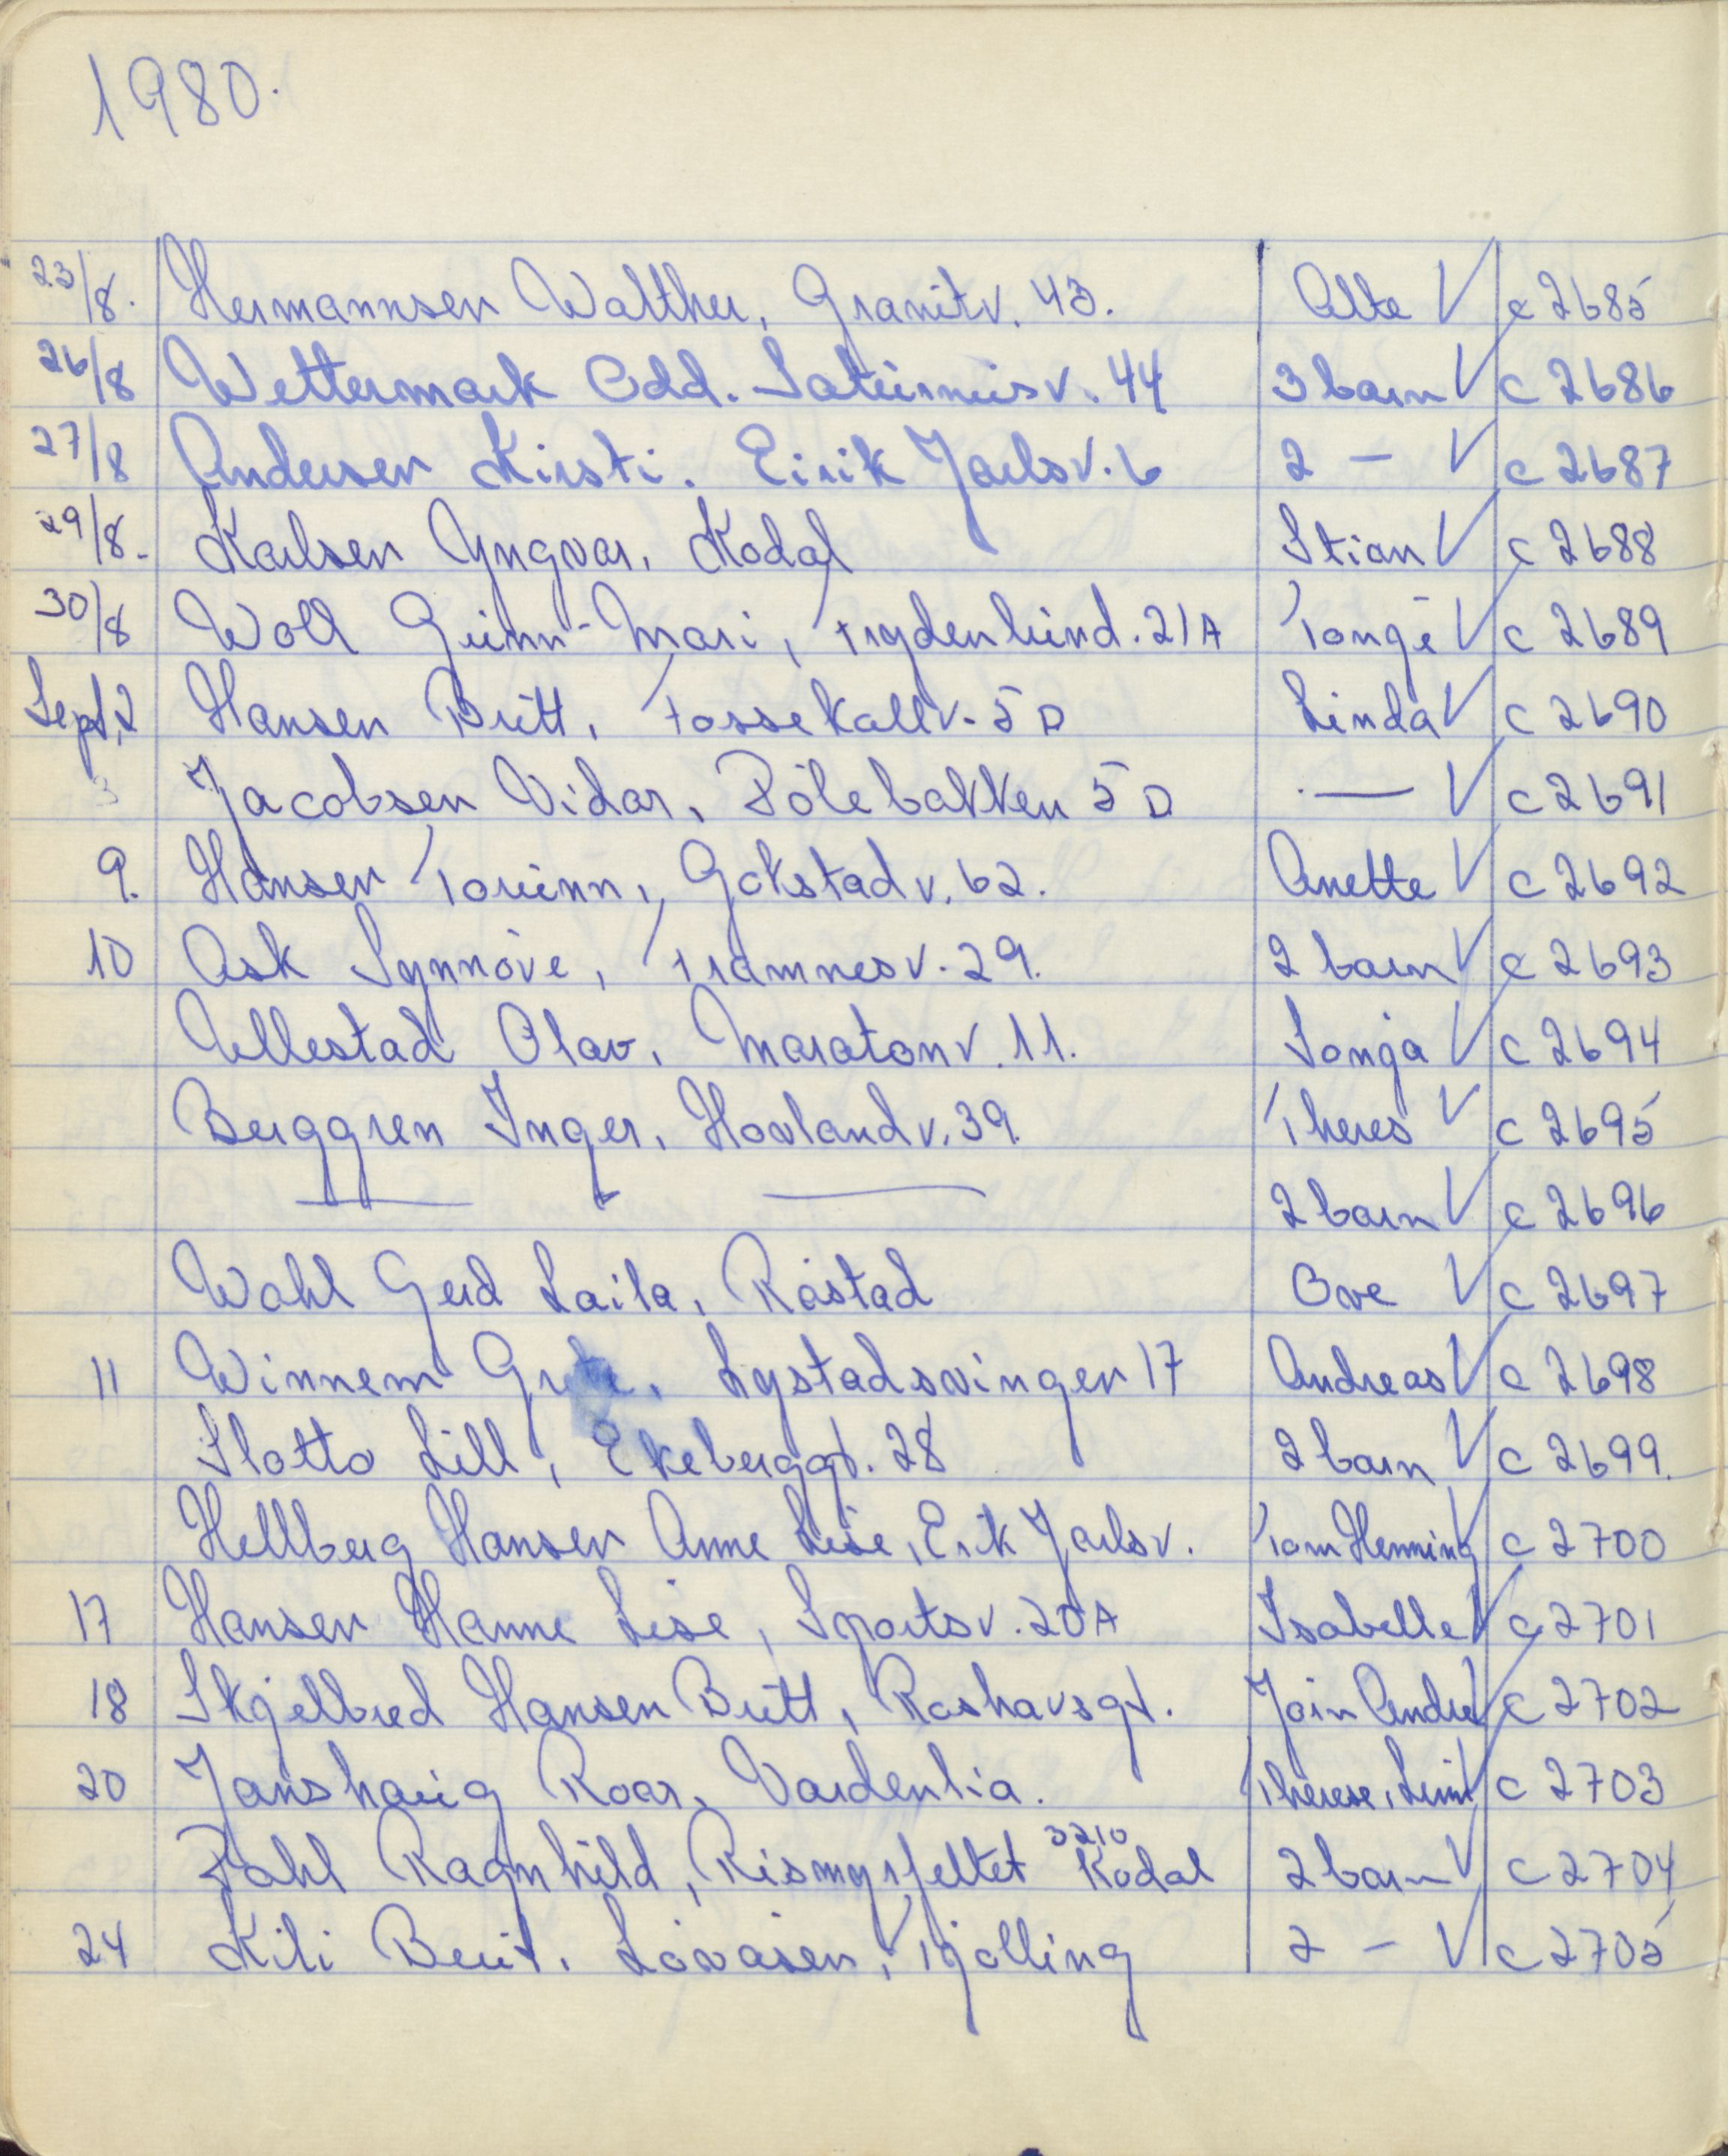 1980.
23/8. Hermannsen Walther, Granitv. 43. Atte V c 2685
26/8 Wettermark Odd. Saturnusv. 44 3 barn V c 2686
27/8 Andersen Kirsti. Eirik Jarlsv. 6 2 — V c 2687
29/8. Karlsen Yngvar, Kodal Stian V c 2688
30/8 Woll Gunn-Mari, Frydenlund. 21A Tonje V c 2689
Sept. 2 Hansen Britt, Fossekallv. 5D Linda V c 2690
3 Jacobsen Vidar, Pölebakken 5D — V c 2691
9. Hansen Torunn, Gokstadv. 62. Anette V c 2692
10 Ask Synnöve, Framnesv. 29. 2 barn V c 2693
Ullestad Olav, Maratonv. 11. Sonja V c 2694
Berggren Inger, Hovlandv. 39. Theres V c 2695
— — 2 barn V c 2696
Wahl Gerd Laila, Råstad Ove V c 2697
11 Winnem Grete, Lystadsvingen 17 Andreas V c 2698
Slotto Lill, Ekeberggt. 28 2 barn V c 2699.
Hellberg Hansen Anne Lise, Erik Jarlsv. Tom Henning V c 2700
17 Hansen Hanne Lise, Sportsv. 20A Isabelle V c 2701
18 Skjelbred Hansen Britt, Roshavsgt. Join André V c 2702
20 Janshaug Roar, Vardenlia. Therese, V c 2703
Dahl Ragnhild, Rismyrfeltet 3210 Kodal 2 barn V c 2704
24 Kili Berit. Lövåsen, Tjölling 2 — V c 2705